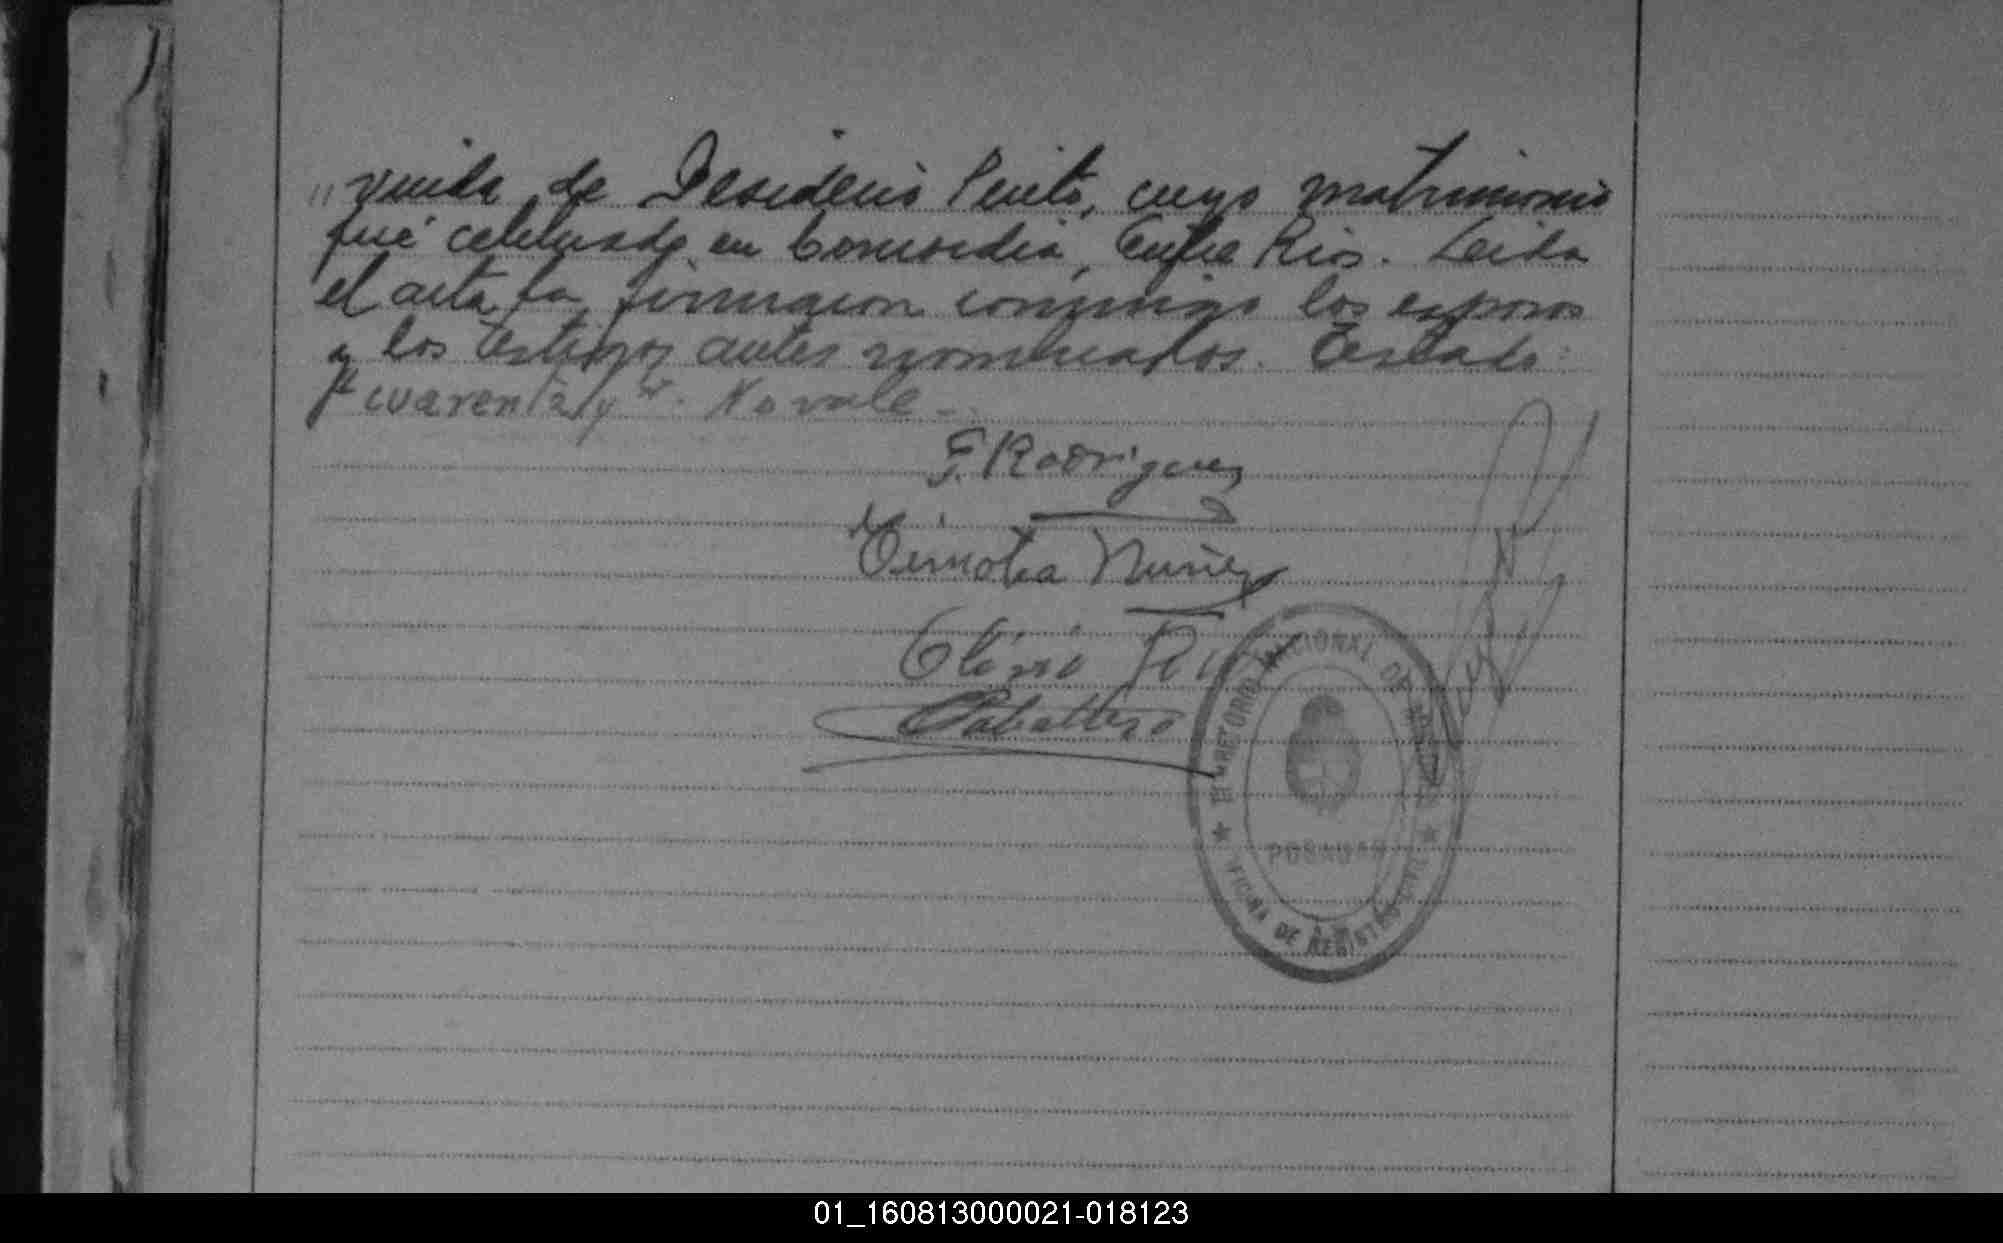 " viuda de Desiderio Peuito, cuyo matrimonio
fué celebrado en Concordia, Entre Rios. Leida
el acta la firmaron conmigo los esposos
y los testigos antes nombrados. Testado:
cuarenta y No vale -
F. Rodriguez
Timotea Nuñez
Caballero
DIRECTORIO NACIONAL DE
POSADAS
OFICINA DE REGISTRO CIVIL
01_160813000021-018123